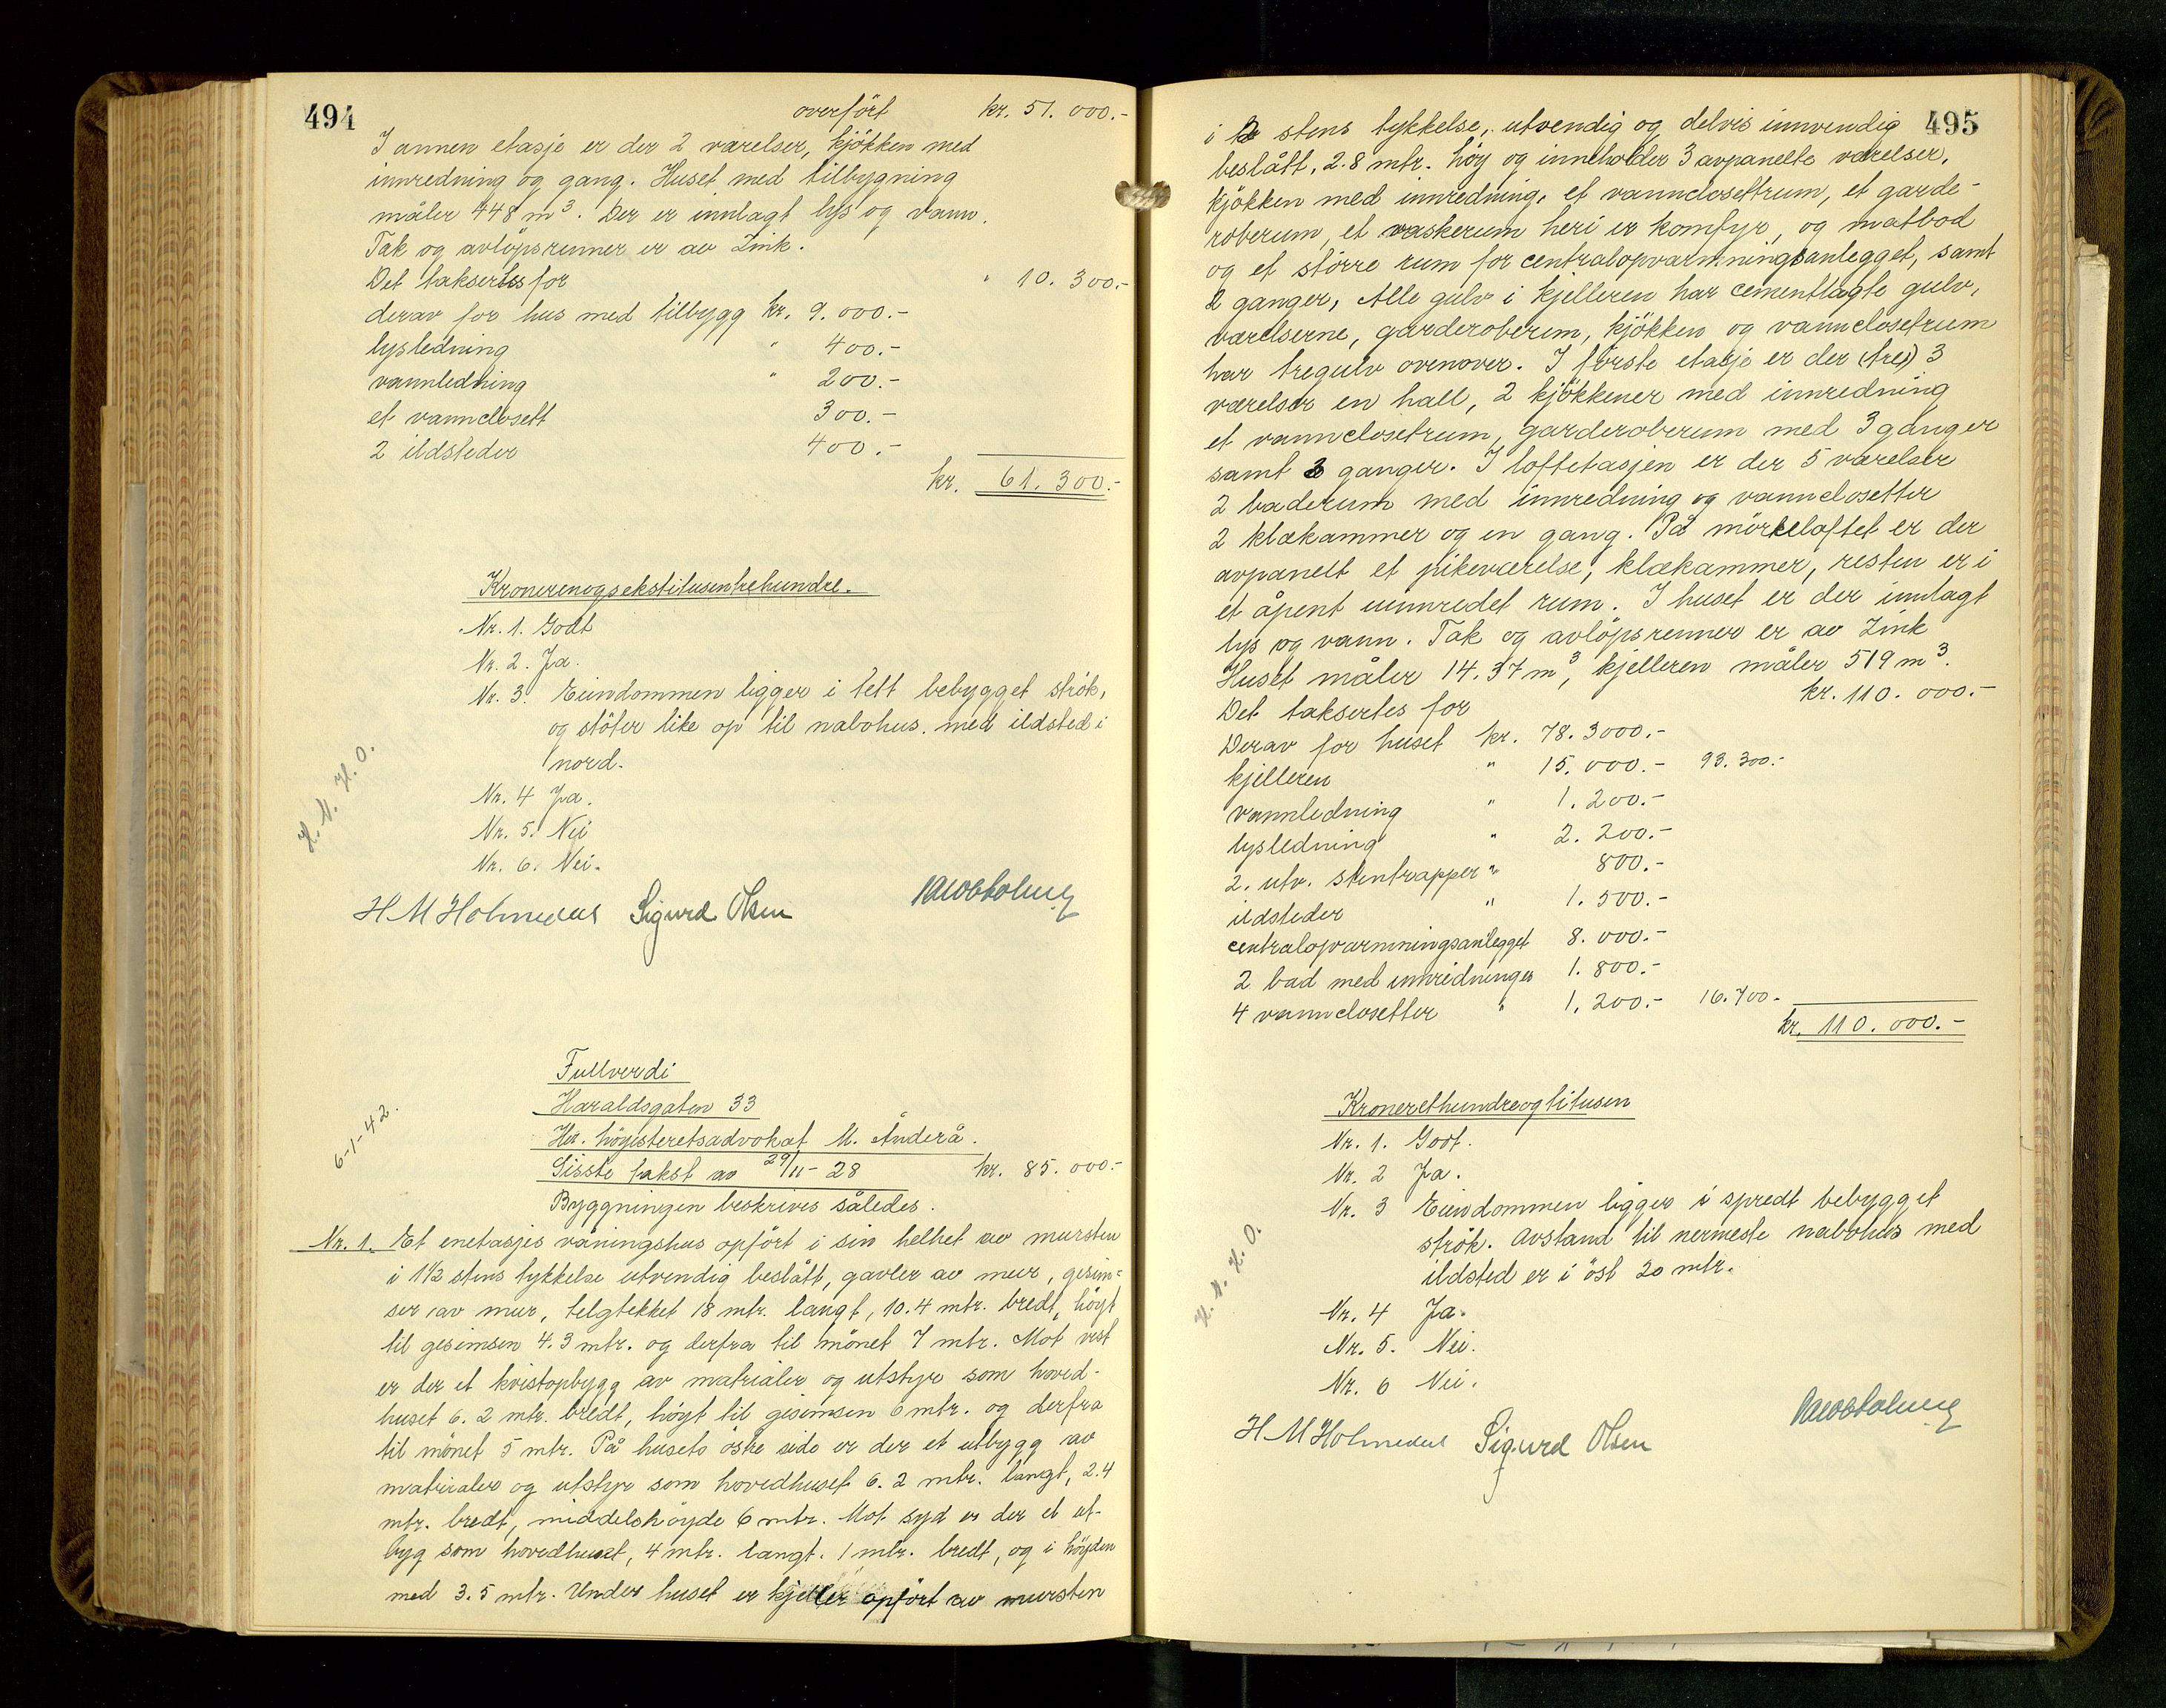 494
overfört kr. 51.000.-
I annen etasje er der 2 værelser, kjökken med
innredning og gang. Huset med tilbygning
måler 448 m³. Der er innlagt lys og vann.
Tak og avlöpsrenner er av Zink.
Det taksertes for " 10.300.-
derav for hus med tilbygg kr. 9.000.-
lysledning " 400.-
vannledning " 200.-
et vannclosett 300.-
2 ildsteder 400.-
kr. 61.300.-
Kronerenogsekstitusentrehundre.
Nr. 1. Godt
Nr. 2. Ja.
Nr. 3. Eiendommen ligger i tett bebygget strök,
og stöter like op til nabohus med ildsted i
nord.
Nr. 4 Ja.
Nr. 5. Nei
Nr. 6. Nei.
H. M. H. O.
H M Holmedal Sigurd Olsen
Fullverdi
Haraldsgaten 33
Hr. höiesteretsadvokat M. Anderå.
6-1-42.
Sisste takst av 29/11-28 kr. 85.000.-
Byggningen beskrives således.
Nr. 1. Et enetasjes våningshus opfört i sin helhet av mursten
i 1½ stens tykkelse utvendig beslått, gavler av mur, gesim-
ser av mur, telgtekket 18 mtr. langt, 10.4 mtr. bredt, höyt
til gesimsen 4.3 mtr. og derfra til mönet 7 mtr. Mot vest
er der et kvistopbygg av matrialer og utstyr som hoved-
huset 6.2 mtr. bredt, höyt til gesimsen 6 mtr. og derfra
til mönet 5 mtr. På husets östre side er der et utbygg av
matrialer og utstyr som hovedhuset 6.2 mtr. langt, 2.4
mtr. bredt, middelshöyde 6 mtr. Mot syd er der et ut-
byg som hovedhuset, 4 mtr. langt. 1 mtr. bredt, og i höyden
med 3.5 mtr. Under huset er kjeller opfört av mursten
495
i 2 stens tykkelse, utvendig og delvis innvendig
beslått, 2.8 mtr. höy og inneholder 3 avpanelte værelser,
kjökken med innredning, et vannclosettrum, et garde-
roberum, et vaskerum heri er komfyr, og matbod
og et större rum for centralopvarmningsanlegget, samt
2 ganger, Alle gulv i kjelleren har cementlagte gulv,
værelserne, garderoberum, kjökken og vannclosetrum
har tregulv ovenover. I förste etasje er der (tre) 3
værelser en hall, 2 kjökkener med innredning
et vannclosetrum, garderoberum med 3 ganger
samt 3 ganger. I loftetasjen er der 5 værelser
2 baderum med innredning og vannclosetter
2 klækammer og en gang. På mörkeloftet er der
avpanelt et pikeværelse, klækammer, resten er i
et åpent uinnredet rum. I huset er der innlagt
lys og vann. Tak og avlöpsrenner er av Zink
Huset måler 14.37 m³, kjelleren måler 519 m³.
Det taksertes for kr. 110.000.-
Derav for huset kr. 78.3000.-
kjelleren " 15.000.- 93.300.-
vannledning " 1.200.-
lysledning " 2.200.-
2. utv. stentrapper " 800.-
ildsteder " 1.500.-
centralopvarmningsanlegget 8.000.-
2 bad med innredninger 1.800.-
4 vannclosetter " 1.200.- 16.700.-
kr. 110.000.-
Kronerethundreogtitusen
Nr. 1. Godt.
Nr. 2 Ja.
Nr. 3 Eiendommen ligger i spredt bebygget
strök. Avstand til nermeste nabohus med
ildsted er i öst 20 mtr.
Nr. 4 Ja.
Nr. 5. Nei.
Nr. 6 Nei.
H. M. H. O.
H M Holmedal Sigurd Olsen